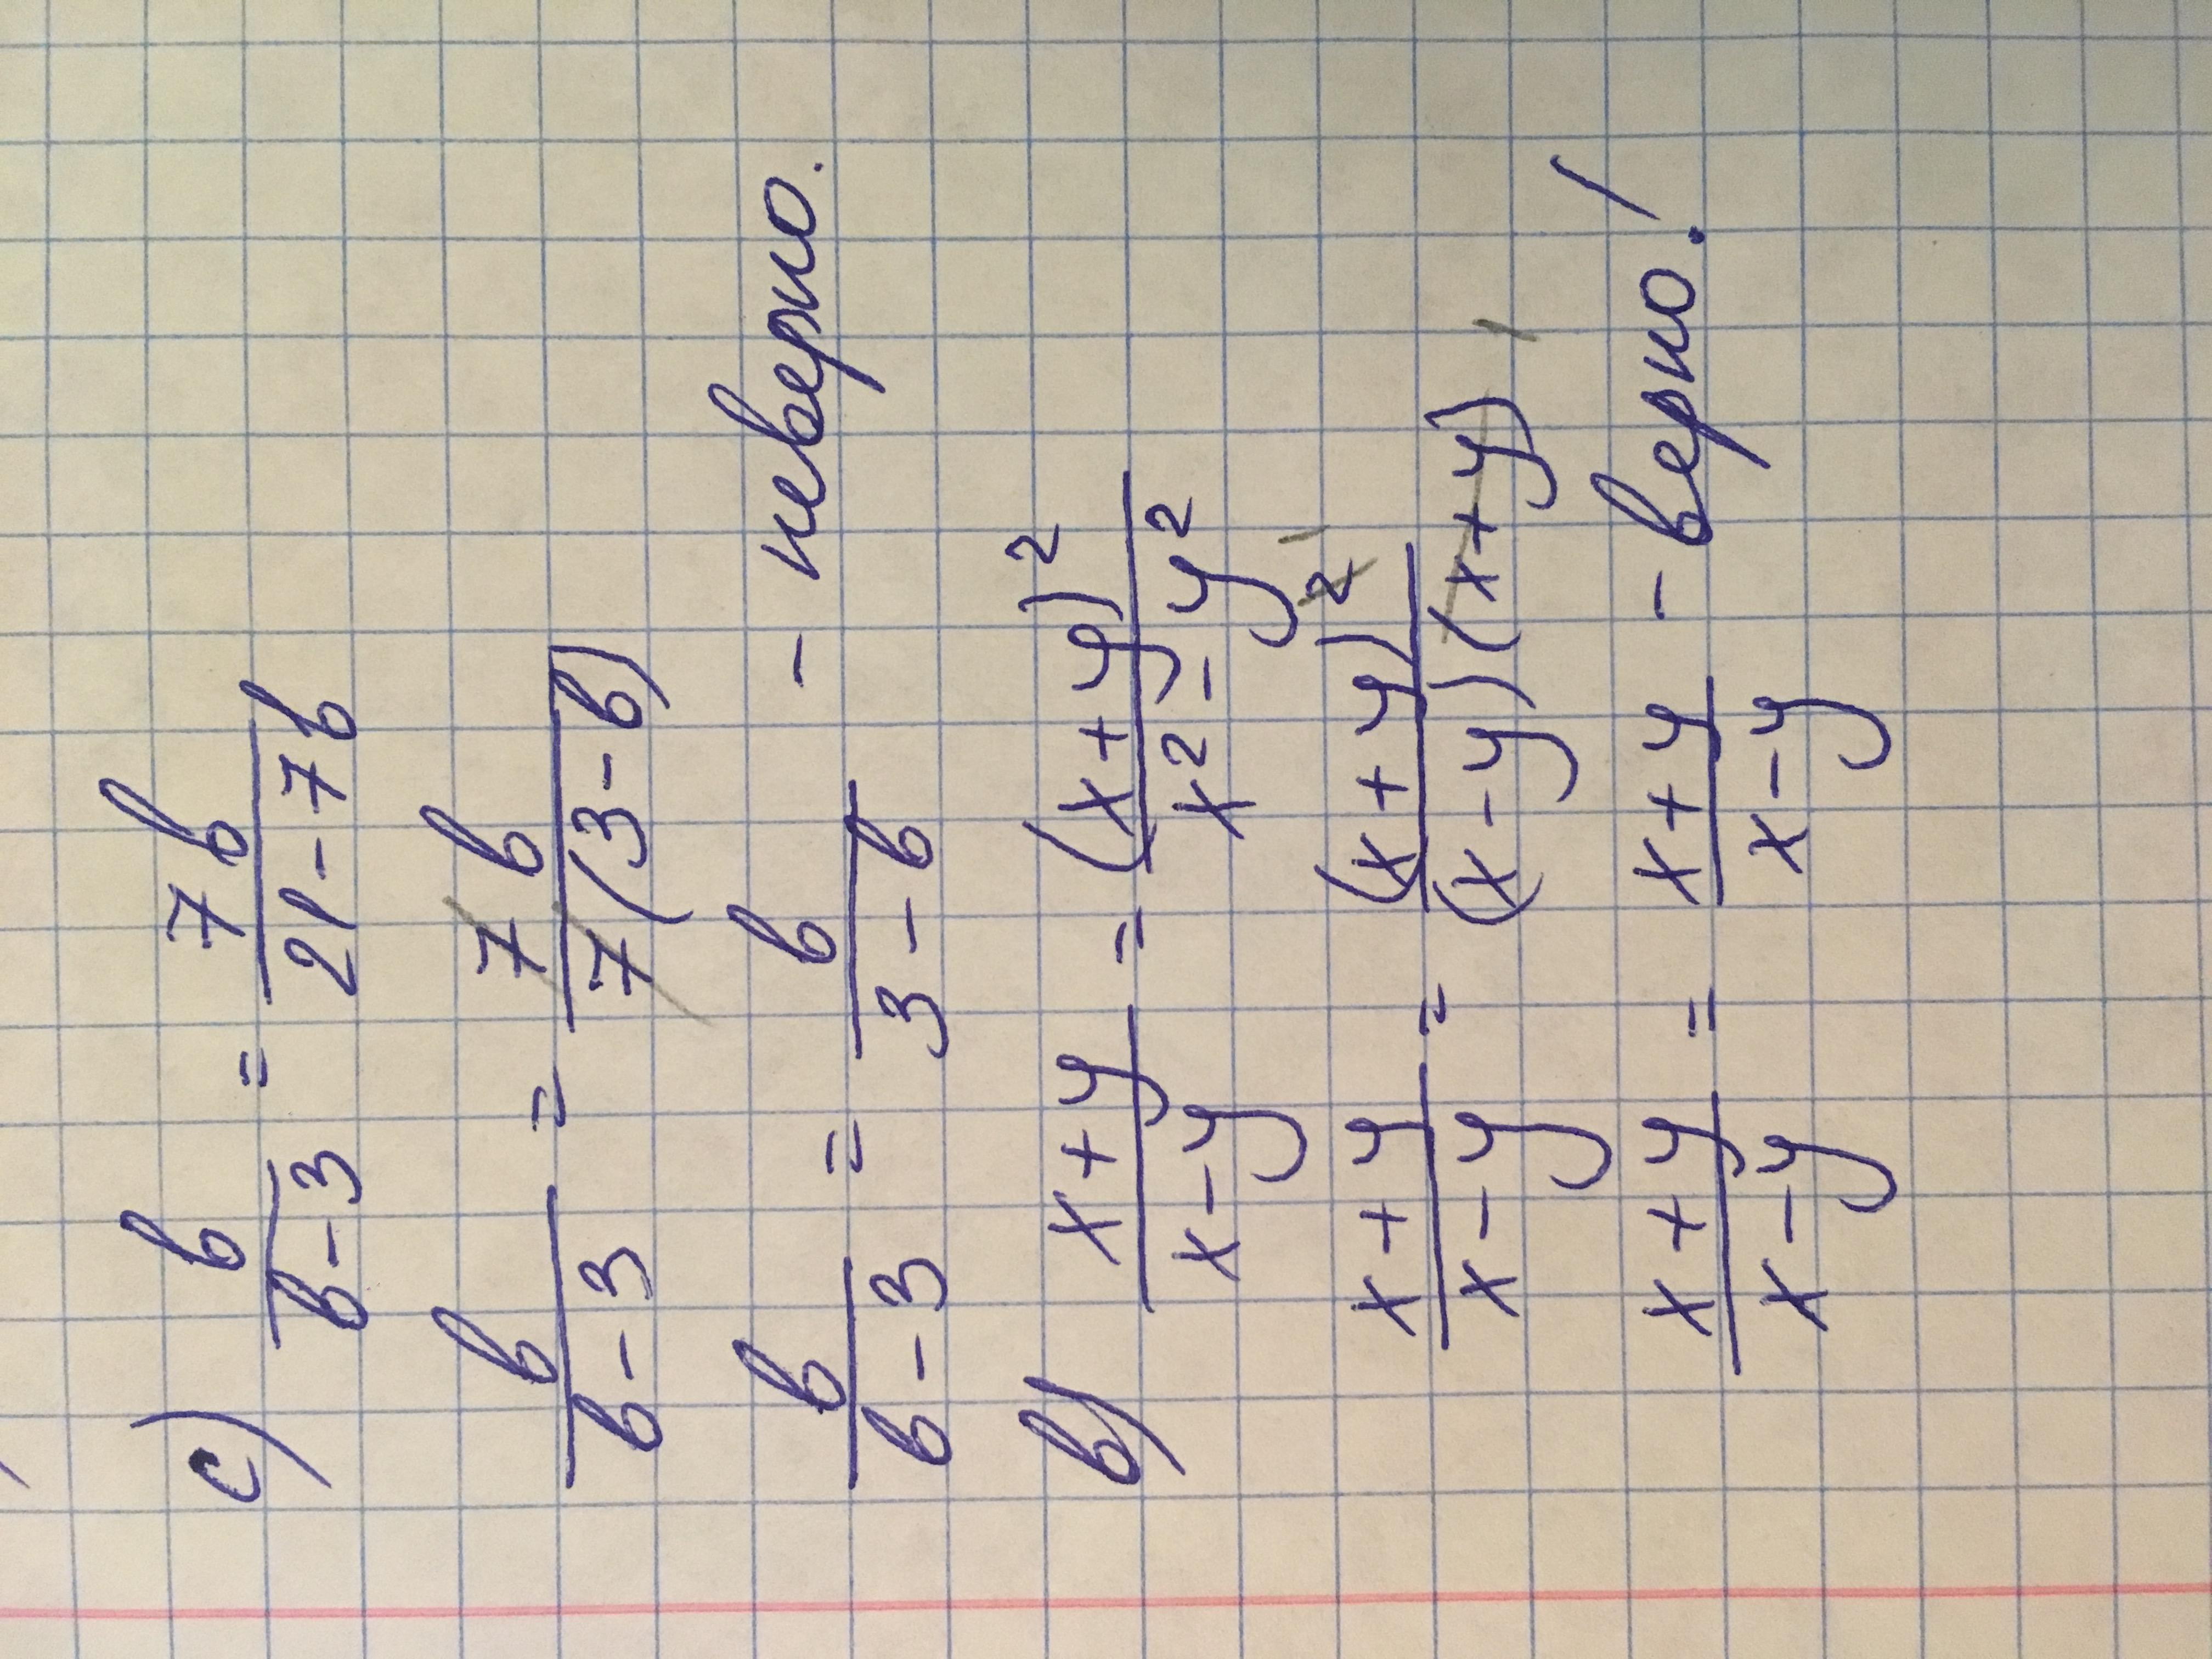 c) в/(в-3) = 7в/(21-7в)
в/(в-3) = 7в/(7(3-в))
в/(в-3) = в/(3-в) - неверно.
в) (x+y)/(x-y) = (x+y)²/(x²-y²)
(x+y)/(x-y) = (x+y)²/((x-y)(x+y))
(x+y)/(x-y) = (x+y)/(x-y) - верно!